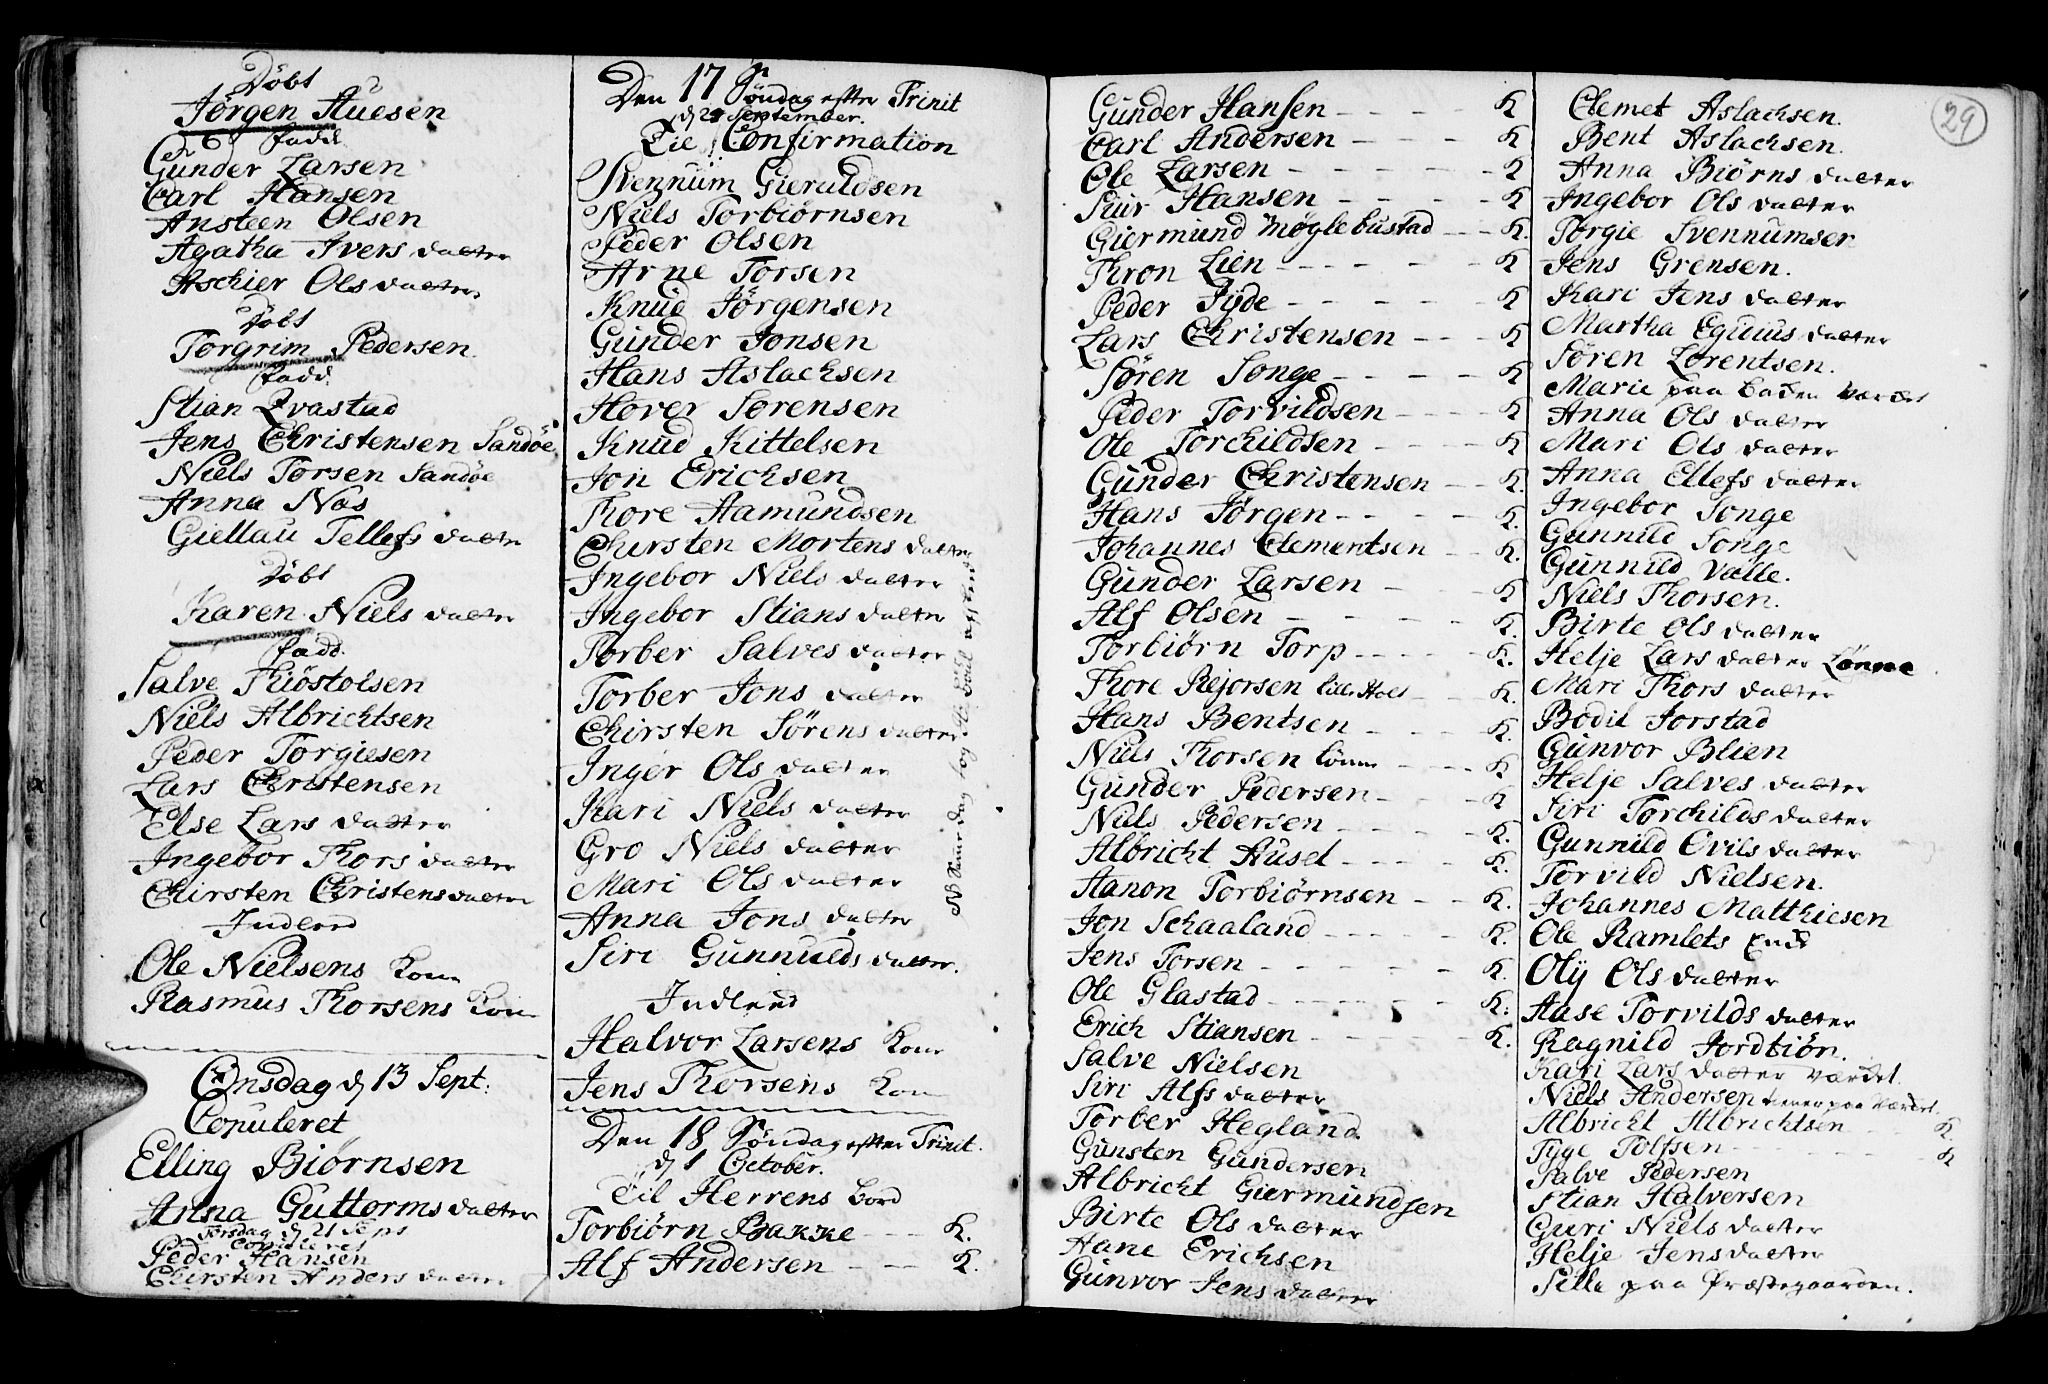 Döbt
Jörgen Auesen
fadd
Gunder Larsen
Carl Hansen
Ansteen Olsen
Agatha Ivers datter
Aschier Ols datter
Döbt
Torgrim Pedersen.
fadd.
Stian Qvastad
Jens Christensen Sandöe
Niels Torsen Sandöe
Anna Nas
Giellau Tellefs datter
Döbt
Karen Niels datter
fadd.
Salve Thiöstolsen
Niels Albrichtsen
Peder Torgiesen
Lars Christensen
Else Lars datter
Ingebor Thors datter
Chirsten Christens datter
Indleed
Ole Nielsens Kone
Rasmus Thorsens Kone
Onsdag d 13 Sept:
Copuleret
Elling Biörnsen
Anna Guttorms datter
Torsdag d 21 Sept
Copuleret
Peder Hansen
Chirsten Anders datter
Den 17 Söndag efter Trinit
d 24 September.
Til Confirmation
Svennum Gieruldsen
Niels Torbiörnsen
Peder Olsen
Arne Torsen
Knud Jörgensen
Gunder Jonsen
Hans Aslachsen
Hover Sörensen
Knud Kittelsen
Jon Erichsen
Thore Aamundsen
Chirsten Mortens datter
Ingebor Niels datter
Ingebor Stians datter
Torber Salves datter
Torber Jons datter
Chirsten Sörens datter
Inger Ols datter
Kari Niels datter
Gro Niels datter
Mari Ols datter
Anna Jons datter
Siri Gunnulds datter.
Indleed
Halvor Larsens Kone
Jens Thorsens Kone
Den 18 Söndag efter Trinit.
d 1 October.
Til Herrens bord
Torbiörn Bakke - - K.
Alf Andersen - - K.
29
Gunder Hansen - - - K
Carl Andersen - - - K
Ole Larsen - - - K
Siur Hansen - - - K
Giermund Möglebustad - - K.
Thron Lien - - - K
Peder Fyde - - - K
Lars Christensen - - - K
Sören Songe - - - K
Peder Torvildsen - - - K
Ole Torchildsen - - - K
Gunder Christensen - - K.
Hans Jörgen - - - K.
Johannes Clementsen - - K.
Gunder Larsen - - - K
Alf Olsen - - - K.
Torbiörn Torp - - - K.
Thore Rejorsen - - K.
Hans Bentsen - - - K.
Niels Thorsen Lönne - - - K
Gunder Pedersen - - - K
Niels Pedersen - - - K.
Albricht Ausel - - - K.
Aanon Torbiörnsen - - K.
Jon Schaaland - - - K.
Jens Torsen - - - K.
Ole Glastad - - - K.
Erich Stiansen - - - K.
Salve Nielsen
Siri Alfs datter
Torber Hegland
Gunsten Gundersen
Albricht Giermundsen
Birte Ols datter
Aane Erichsen
Gunvor Jens datter
Clemet Aslachsen.
Bent Aslachsen.
Anna Biörns datter
Ingebor Ols datter
Torgie Svennumsen
Jens Grensen.
Kari Jens datter
Martha Eguius datter
Sören Lorentsen.
Marie paa
Anna Ols datter
Mari Ols datter
Anna Ellefs datter
Ingebor Songe
Gunnild Songe
Gunnild Valle.
Niels Thorsen.
Birte Ols datter
Helje Lars datter Lönne
Mari Thors datter
Bodil Jorstad
Gunvor Blien
Helje Salves datter
Siri Torchilds datter
Gunnild Evils datter
Torvild Nielsen.
Johannes Matthiesen
Ole Ramlets
Oly Ols datter
Aase Torvilds datter
Ragnild Jordtiön.
Kari Lars datter Værdet.
Niels Andersen
Albricht Albrichtsen - - K.
Tyge Tolfsen - - - K
Salve Pedersen
Stian Halversen
Guri Niels datter
Helje Jens datter
Sille paa Præstegaarden.